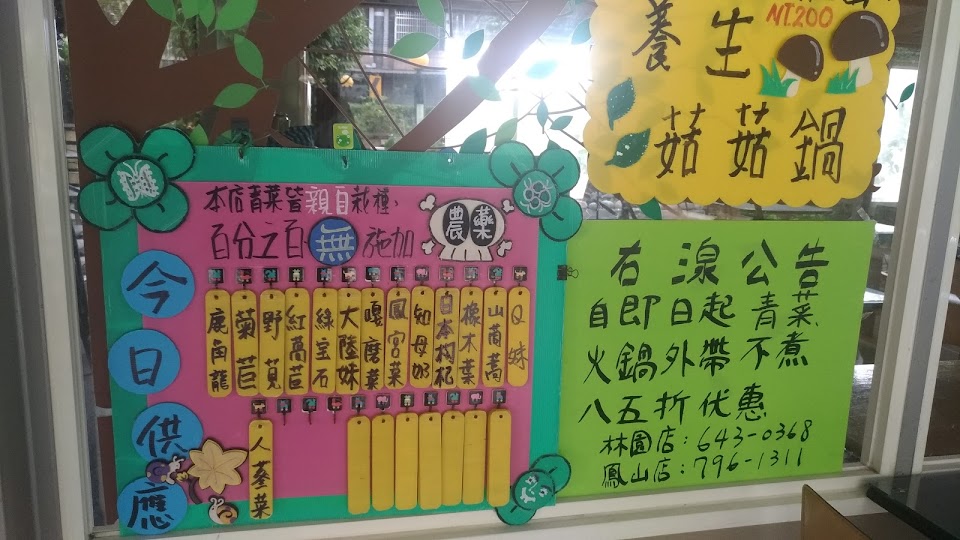 養生
NT.200
菇菇鍋
本店青菜皆親自栽種、
百分之百無施加農藥
今日供應
鹿角龍
菊苣
野莧
紅萵苣
綠宝石
大陸妹
鳳宮菜
知母奶
日本枸杞
橡木葉
山茼蒿
Q妹
人蔘菜
右湶公告
自即日起 青菜
火鍋外帶不煮
八五折优惠
林園店：643-0368
鳳山店：796-1311